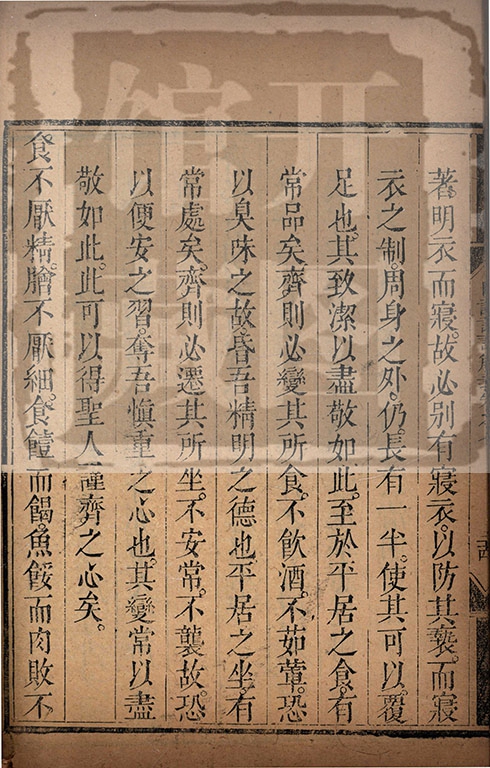 著明衣而寢。故必别有寢衣。以防其褻。而寢
衣之制。周身之外。仍長有一半。使其可以覆
足也。其致潔以盡敬如此。至於平居之食。有
常品矣。齊則必變其所食。不飲酒。不茹葷。恐
以臭味之故。昏吾精明之德也。平居之坐。有
常處矣。齊則必遷其所坐。不安常。不襲故。恐
以便安之習。奪吾愼重之心也。其變常以盡
敬如此。此可以得聖人謹齊之心矣。
食不厭精。膾不厭細。食饐而餲。魚餒而肉敗。不